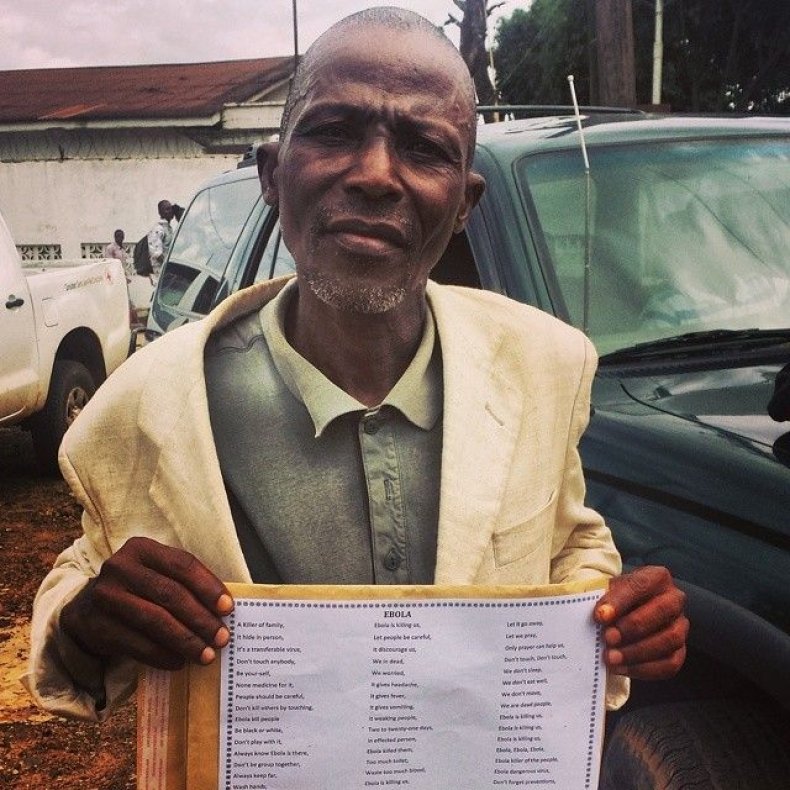 EBOLA
A Killer of family,
It hide in person,
It's a transferable virus,
Don't touch anybody,
Be your-self,
None medicine for it,
People should be careful,
Don't kill others by touching,
Ebola kill people
Be black or white,
Don't play with it,
Always know Ebola is there,
Don't be group together,
Always keep far,
Wash hands,
Ebola is killing us,
Let people be careful,
It discourage us,
We in dead,
We worried,
It gives headache,
It gives fever,
It gives vomiting,
It weaking people,
Two to twenty-one days,
In effected person,
Ebola killed them,
Too much toilet,
Waste too much blood,
Ebola is killing us,
Let it go away,
Let we pray,
Only prayer can help us,
Don't touch, Don't touch,
We don't sleep,
We don't eat well,
We don't move,
We are dead people,
Ebola is killing us,
Ebola is killing us,
Ebola is killing us,
Ebola, Ebola, Ebola,
Ebola killer of the people,
Ebola dangerous virus,
Don't forget preventions,